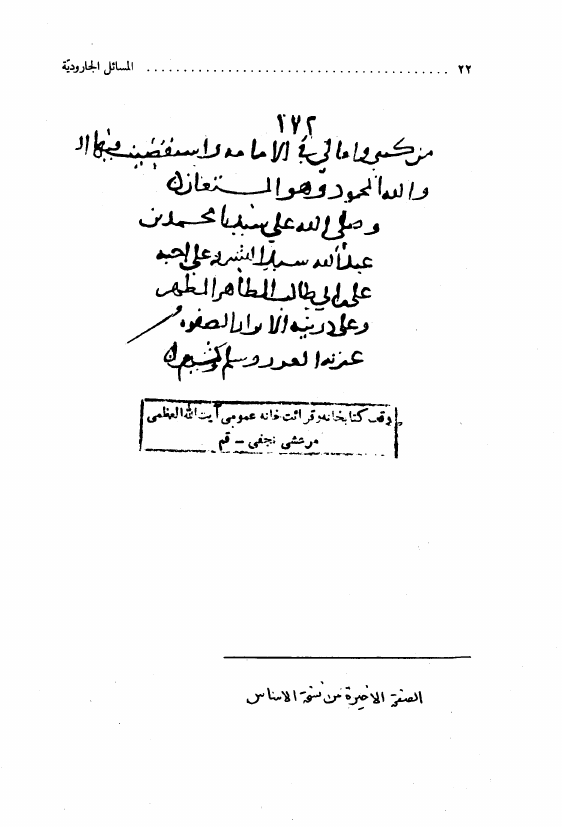 ٢٢ ........................................ المسائل الجاروديّة
١٧٢
من كتبي وامالي في الامامه واستقصيت فيها ال
والله المحمود وهو المستعان
وصلى الله على سيدنا محمد بن
عبد الله سيد البشر وعلى اخيه
على بن ابي طالب الطاهر المطهر
وعلى ذريته الابرار الصفوه
عترته الغرر وسلم
وقف كتابخانه وقرائت خانه عمومى آيت الله العظمى
مرعشى نجفى - قم
الصفحة الاخيرة من نسخة الاساس